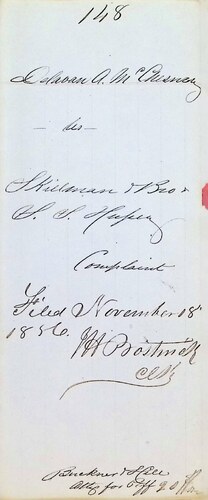 148
Delavan A. McChesney
— vs —
Skillman & Bro &
S. S.
Complaint
Filed November 18th
1856.
W Bostwick
Clk
Buckner & Hill
Atty for Plff